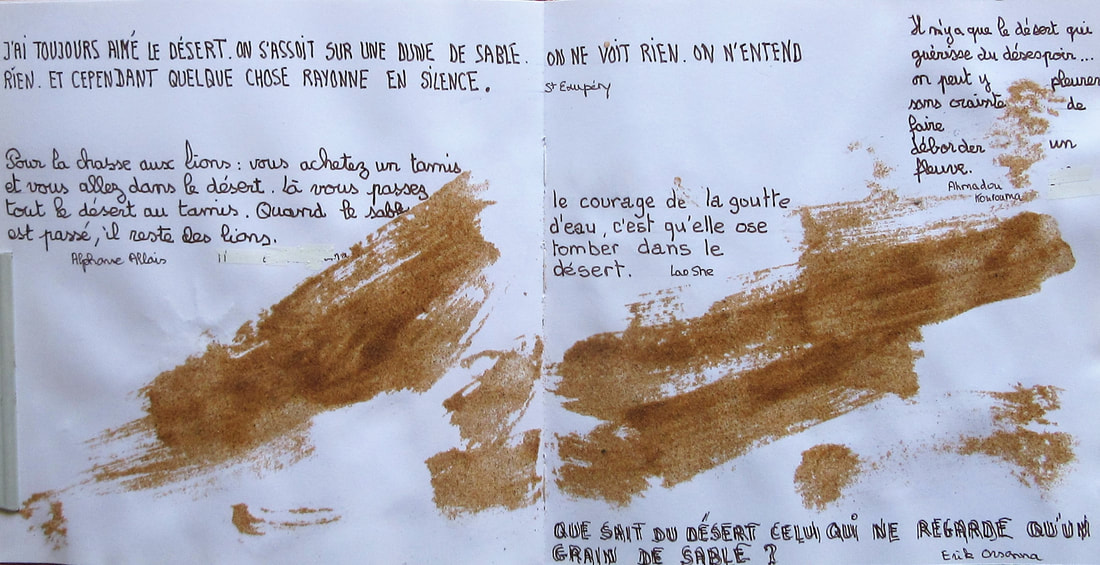 J'AI TOUJOURS AIMÉ LE DÉSERT. ON S'ASSOIT SUR UNE DUNE DE SABLE. ON NE VOIT RIEN. ON N'ENTEND
RIEN. ET CEPENDANT QUELQUE CHOSE RAYONNE EN SILENCE.
St Exupéry
Pour la chasse aux lions : vous achetez un tamis
et vous allez dans le désert. là vous passez
tout le désert au tamis. Quand le sable
est passé, il reste des lions.
Alphonse Allais
Il n'y a que le désert qui
guérisse du désespoir...
on peut y pleurer
sans crainte de
faire
déborder un
fleuve.
Ahmadou
Kourouma
le courage de la goutte
d'eau, c'est qu'elle ose
tomber dans le
désert.
Lao She
QUE SAIT DU DÉSERT CELUI QUI NE REGARDE QU'UN
GRAIN DE SABLE ?
Erik Orsenna